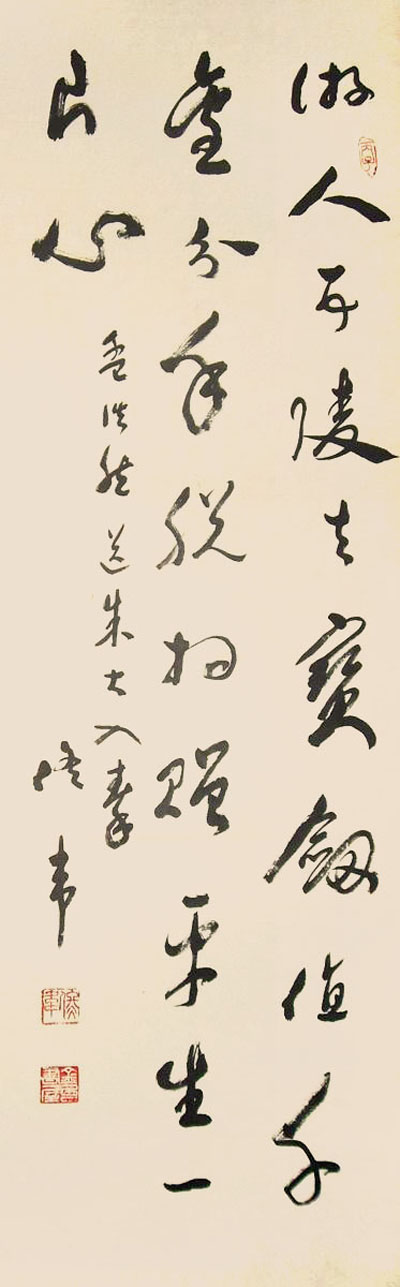 游人五陵去寶劍值千
金分手脱相贈平生一
片心
孟浩然送朱大入秦